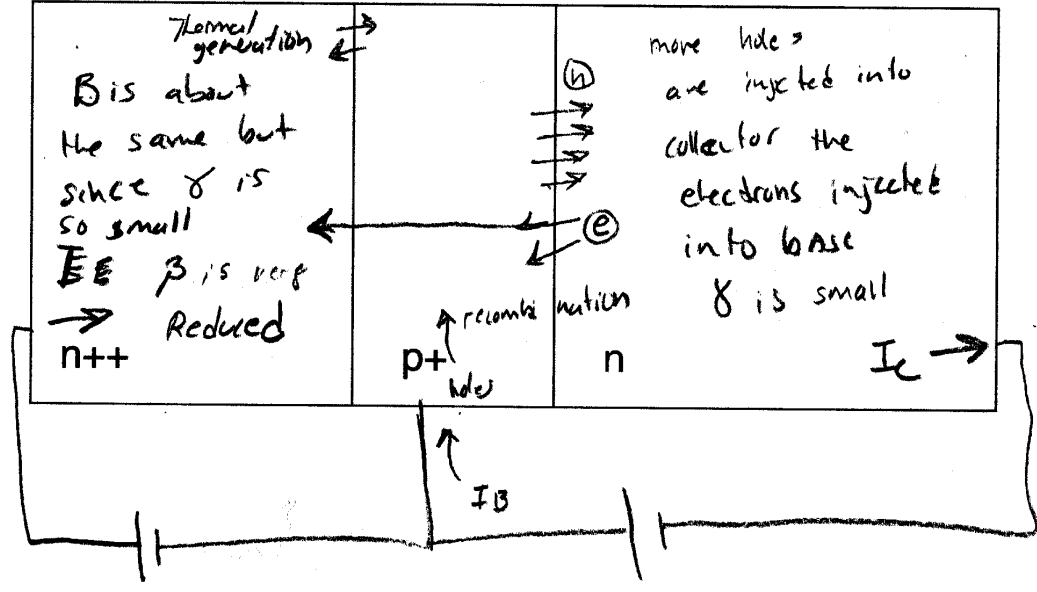 Thermal
generation
B is about
the same but
since γ is
so small
β is very
Reduced
n++
p+
holes
recombination
IB
h
e
n
more holes
are injected into
collector the
electrons injected
into base
γ is small
IC